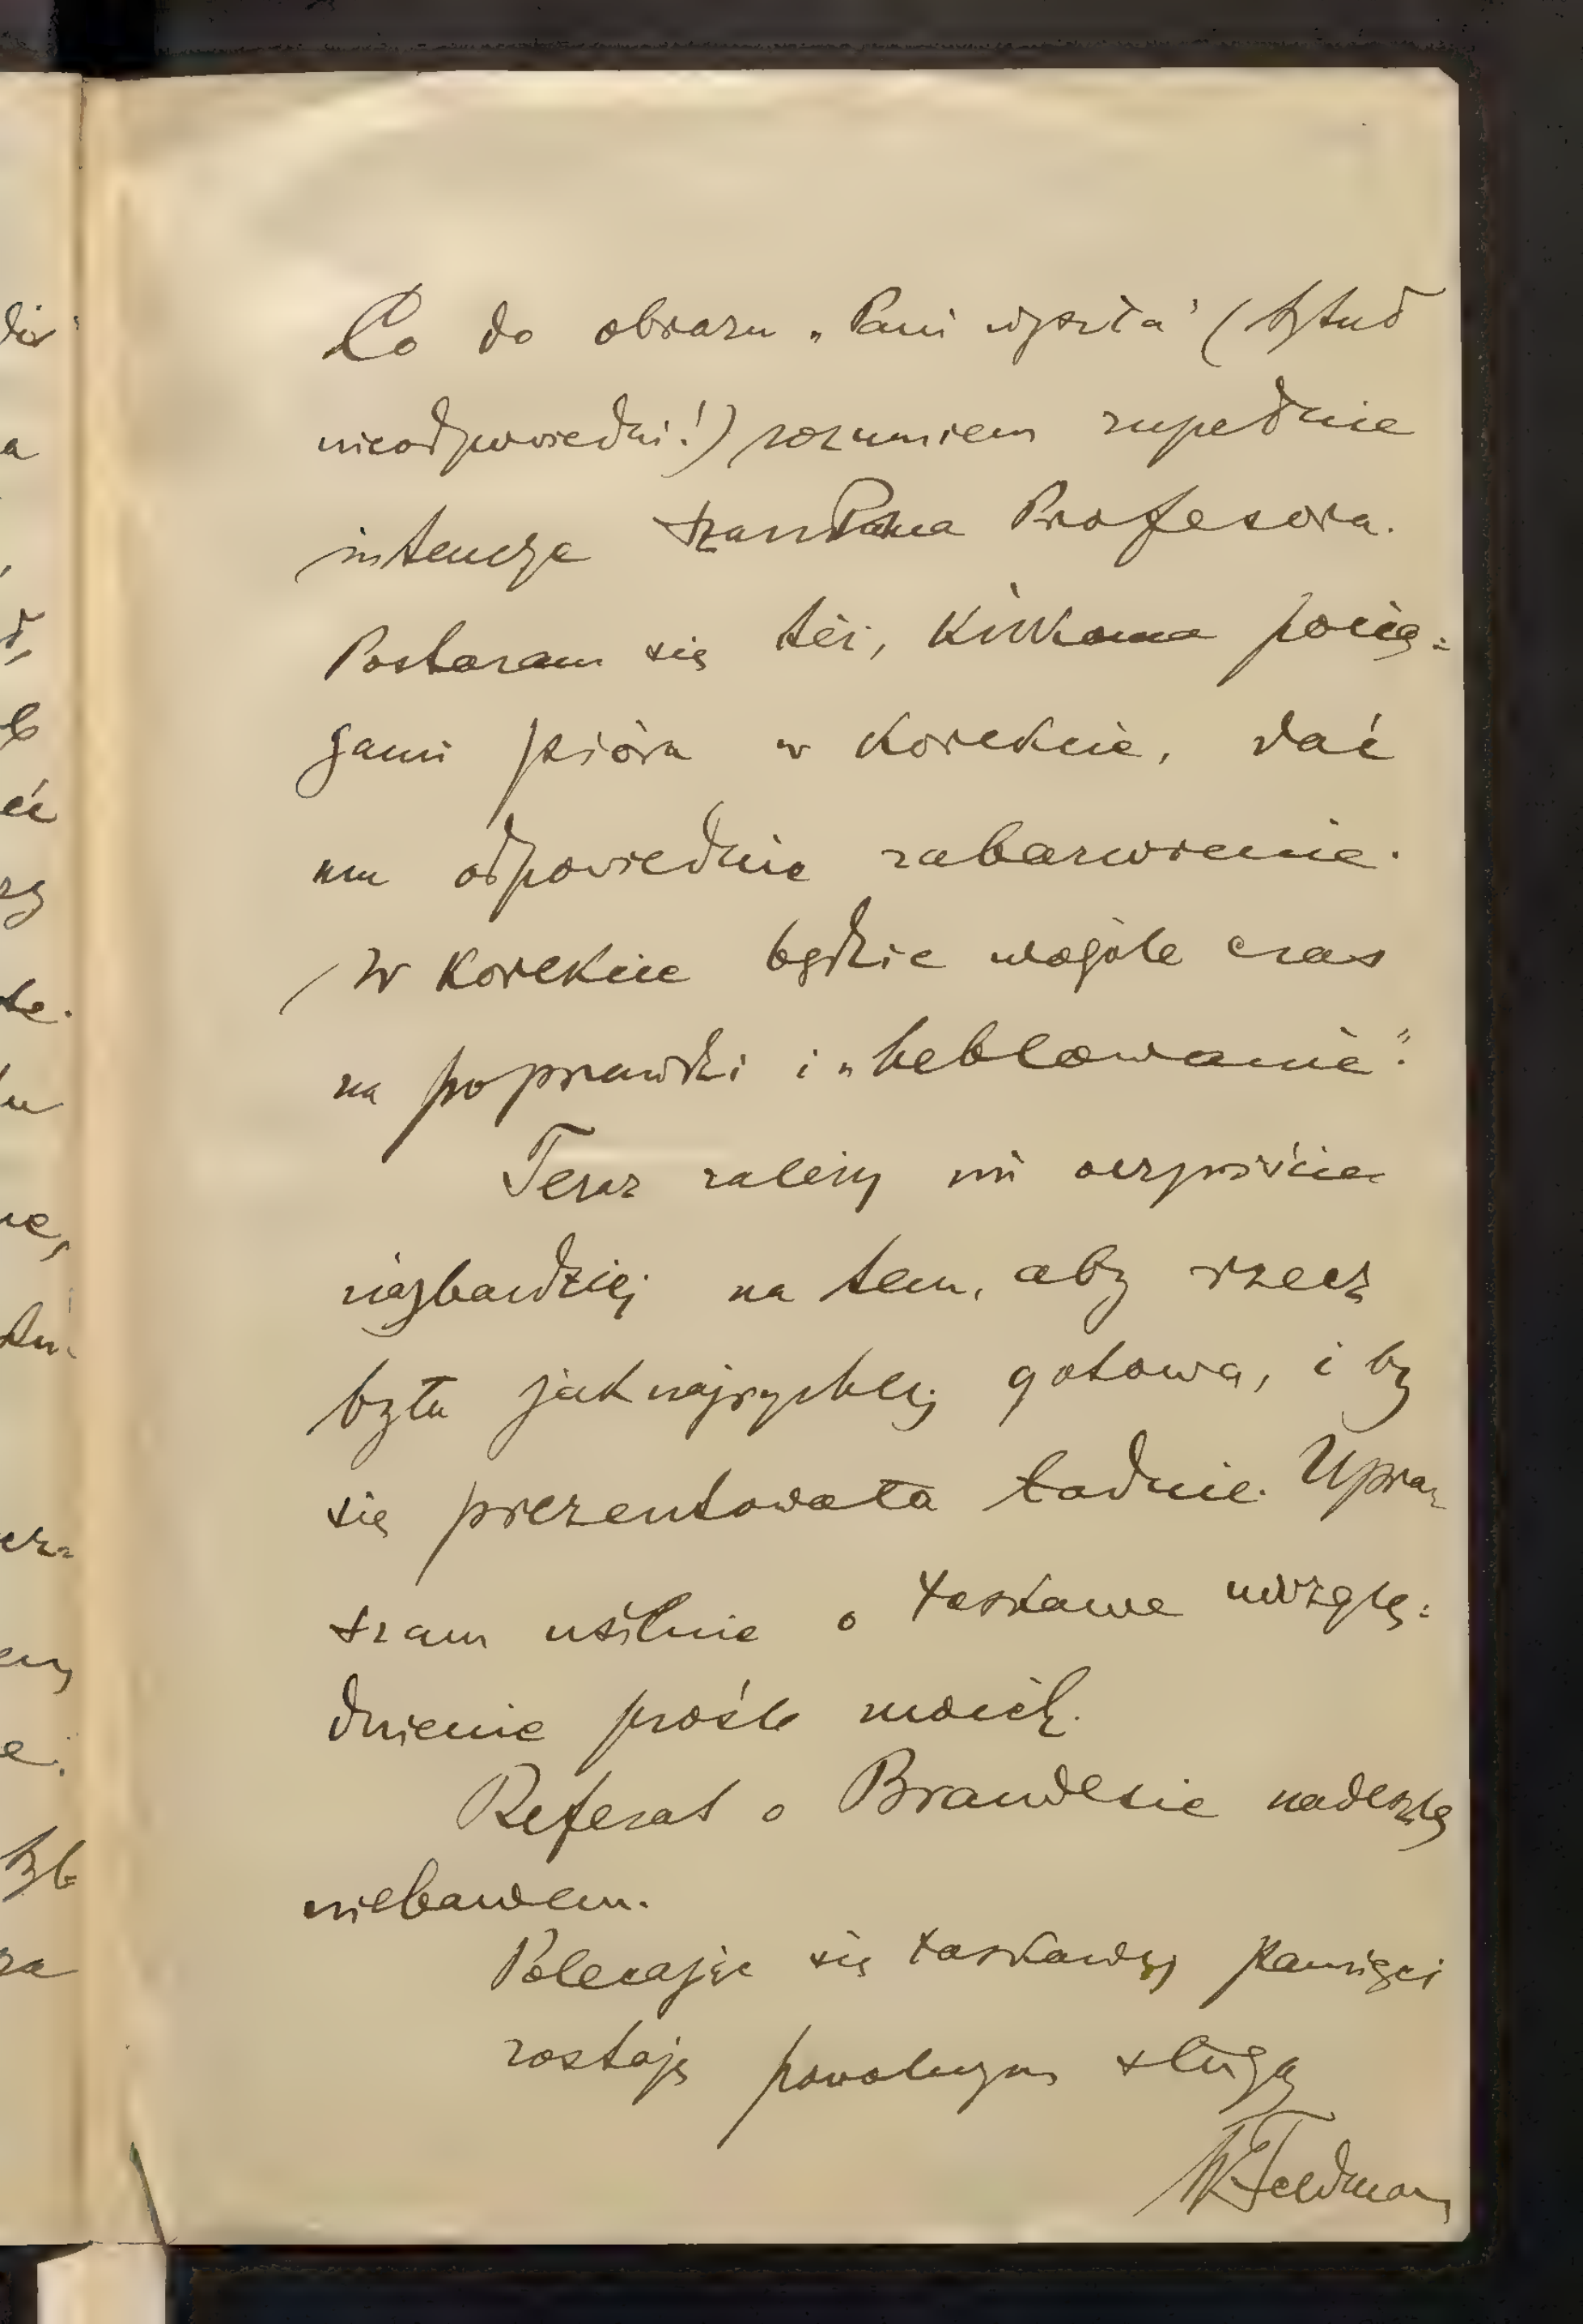 Co do obrazu „Pani wyszła" (tytuł
nieodpowiedni!) rozumiem zupełnie
intencje Szan Pana Profesora.
Postaram się też, kilkoma pocią=
gami pióra w korekcie, dać
mu odpowiednie zabarwienie.
W korekcie będzie wogóle czas
na poprawki i „heblowanie".
Teraz zależy mi oczywiście
najbardziej na tem, aby rzecz
była jaknajrychlej gotowa, i by
się prezentowała ładnie. Upra-
szam usilnie o łaskawe uwzglę=
dnienie próśb moich.
Referat o Brandesie nadeszlę
niebawem.
Polecając się łaskawej pamięci
zostaję powolnym sługą
WFeldman